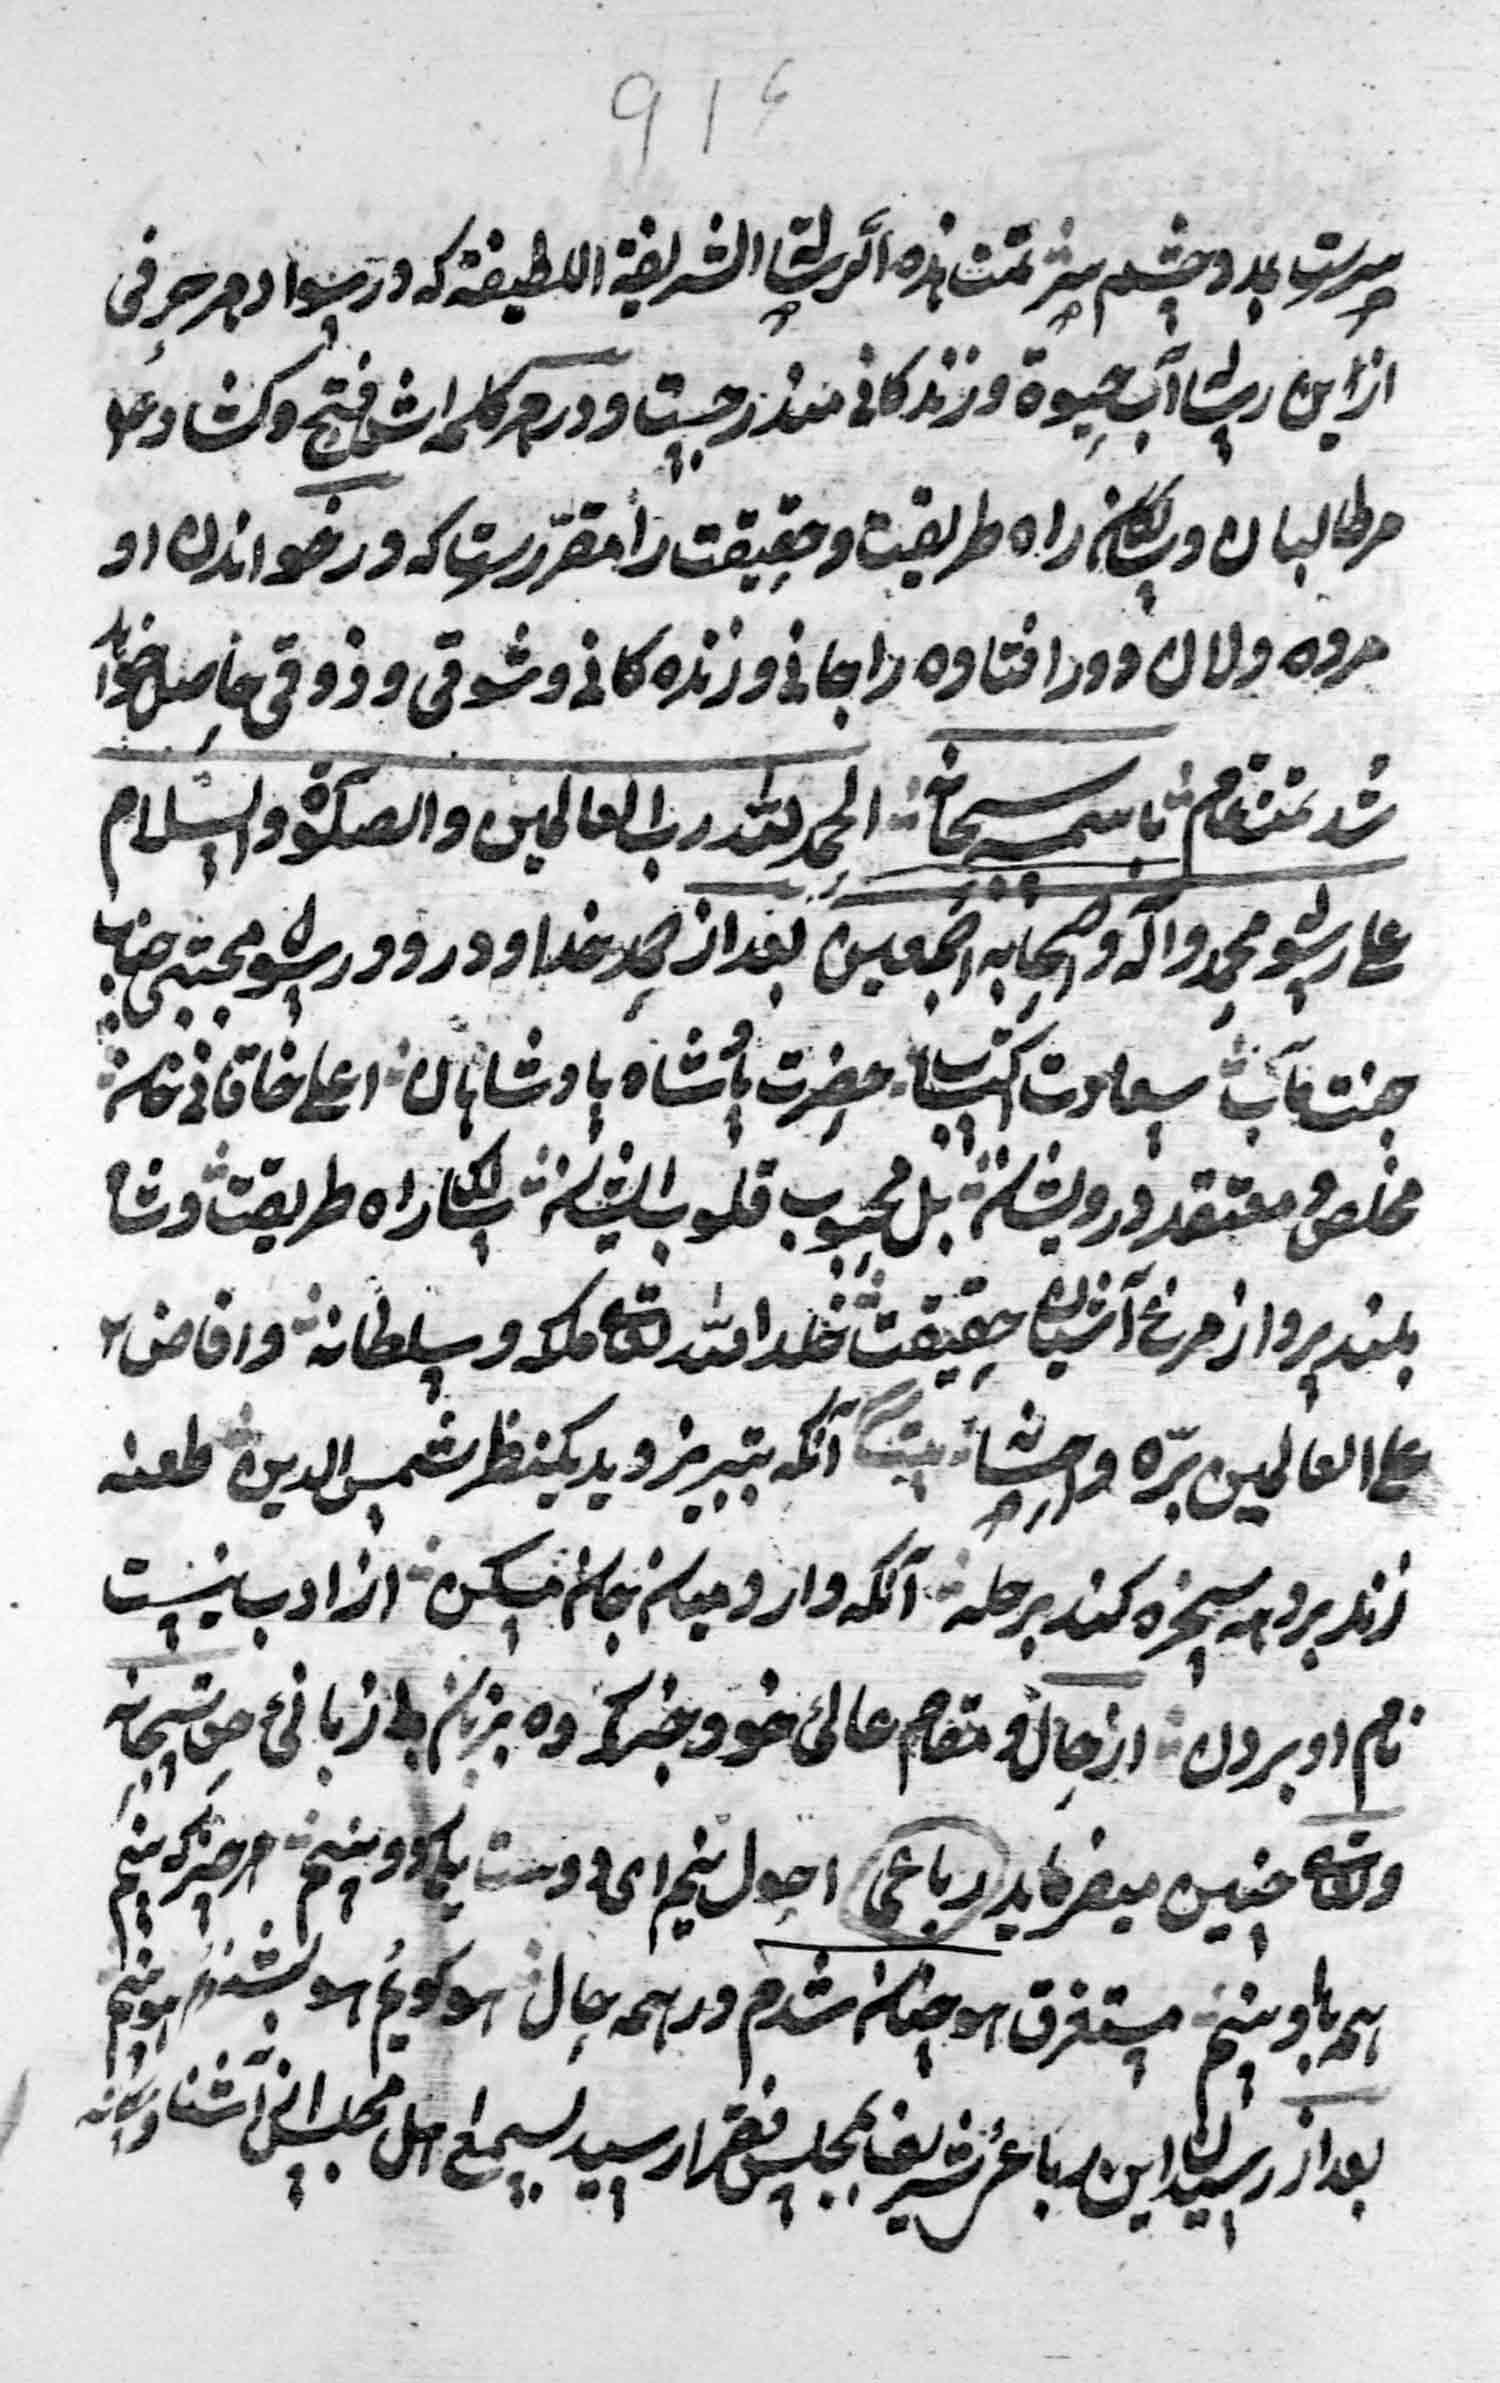 ۹۱۶
سرت بدو چشم سر تمت هذه الرسالة الشریفة اللطیفة که در سواد هر حرفی
ازاین رساله آب حیوة و زندکانی مندرجست و در هر کلمه اش فتح و کشادها
مر طالبان و سالکان راه طریقت و حقیقت را مقررست که در خواندن او
مرده دلان دور افتاده را جانی و زنده کانی و شوقی و ذوقی حاصل خواهد
شد تمت تمام باسمه سبحانه الحمد لله رب العالمین والصلوة والسلام
علی رسوله محمد وآله واصحابه اجمعین بعد از حمد خدا و درود رسول مجتبی جناب
جنت مآب سعادت اکتساب حضرت پادشاه پادشاهان اعلی خاقانی خان
مخلص و معتقد درویشان بل محبوب قلوب ایشان سالک راه طریقت و شاه
بلند پرواز مرغ آشیان حقیقت خلد الله تعالی ملکه وسلطانه وافاض
علی العالمین بره واحسانه بیت آنکه بتبریز دید یکنظر شمس الدین طعنه
زند بر دهه سخره کند بر چله آنکه دارد میان جان مسکن از ادب نیست
نام او بردن از حال و مقام عالئ خود خبر کرده بزبان بی زبانئ حق سبحانه
وتعالی چنین میفرماید رباعی احول نیم ای دوست یکی دو بینم هر چیز که بینم
همه با او بینم مستغرق هو چنان شدم در همه حال هو کویم هو بشنوم هو بینم
بعد از رسیدن این رباعئ شریف بمجلس فقرا رسید بسمع اهل مجلس از آشنا و بیکانه